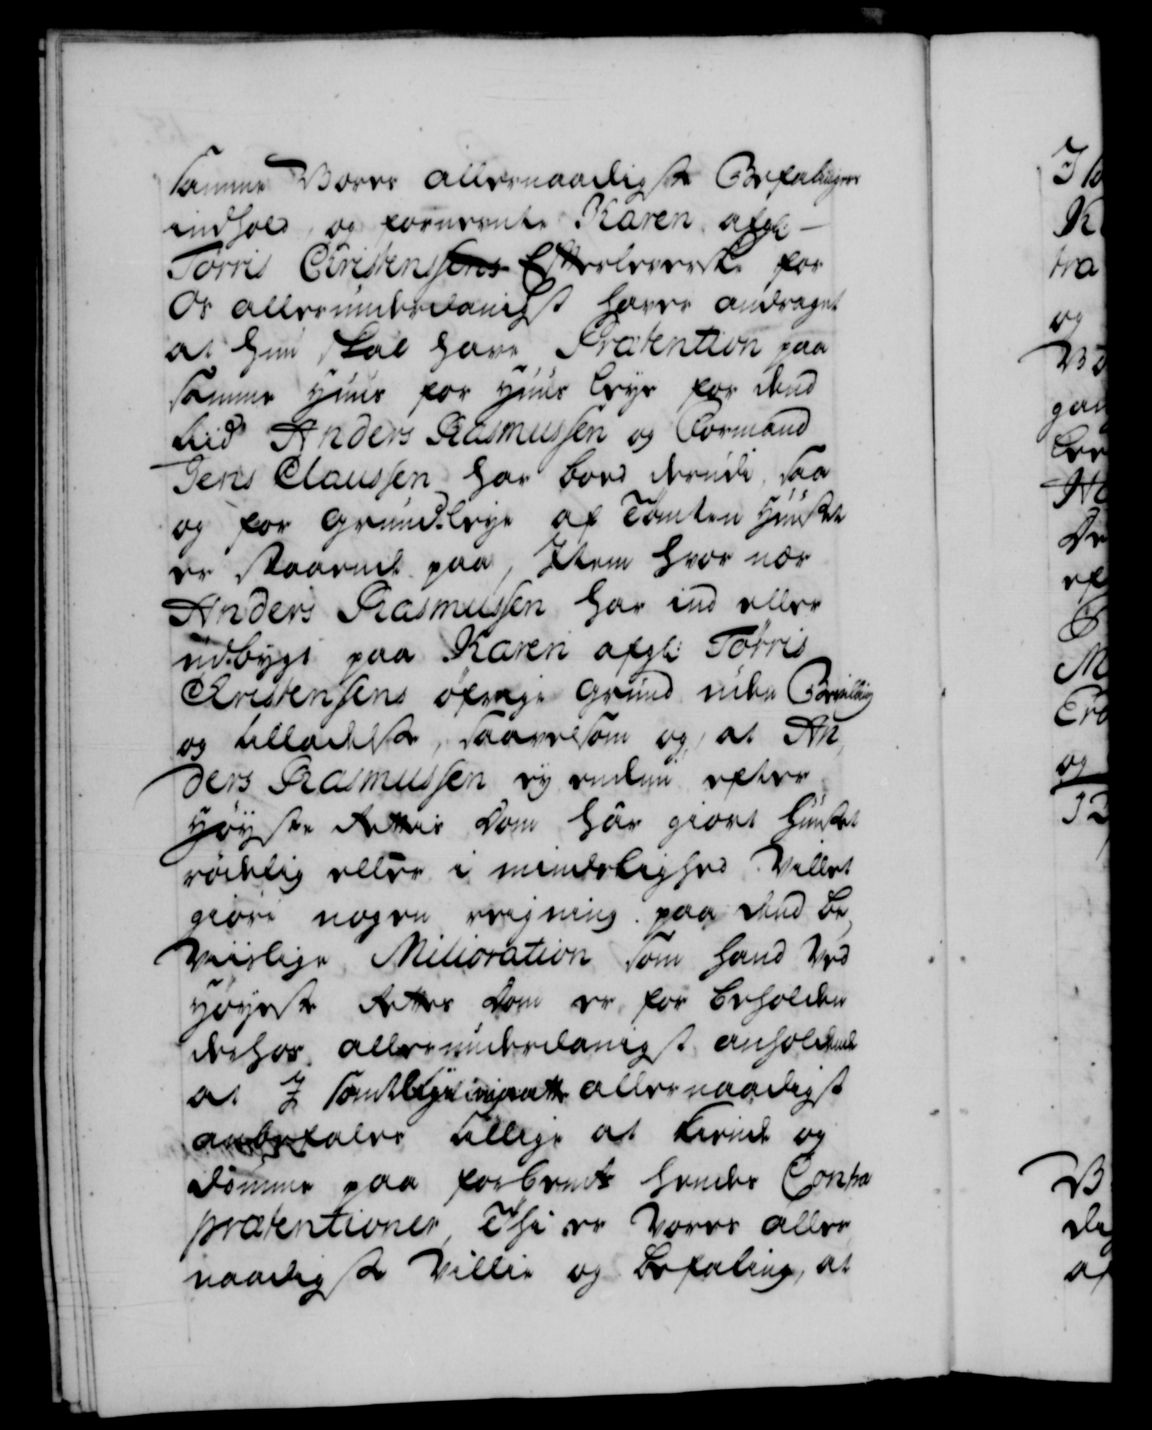 samme Vores allernaadigste Befalinger
indhold, og fornevnte Karen afg:
Tørris Christensens Efterleverske for
Os allerunderdanigst haver andraget
at hun skal have Prætention paa
samme Huus for Huus leye for dend
tid Anders Rasmussen og Formand
Jens Claussen har boed derudi, saa
og for Grund leye af Tomten Huuset
er staaende paa, Item hvor nær
Anders Rasmussen har ind eller
udbygt paa Karen afg: Tørris
Christensens øfrige Grund uden Bevilling
og tilladelse, saavelsom og, at An,
ders Rasmussen ey endnu efter
Høyste Rettes Dom har giort Huuset
rødelig eller i mindelighed villet
giøre nogen reigning paa dend be,
viislige Milioration som hand ved
Høyeste Rettes Dom er for beholden
dehos allerunderdanigst anholdende
at I samtlige maatte allernaadigst
anbefales tillige at kiende og
dømme paa forbemte hendes Contra
prætentioner, Thi er Vores aller
naadigste Villie og befaling, at